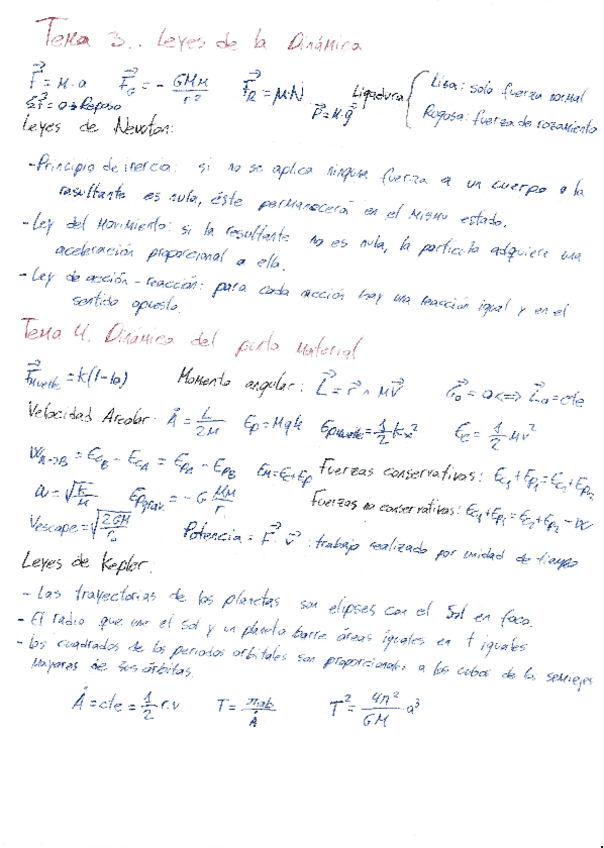 Tema 3.. Leyes de la Dinámica
F⃗ = M · a   F⃗_G = - GMm/r²   F⃗_R = μN   Ligadura { Lisa: solo fuerza normal
ΣF⃗ = 0 → Reposo   P⃗ = M·g⃗   Rugosa: fuerza de rozamiento
Leyes de Newton:
- Principio de inercia: si no se aplica ninguna fuerza a un cuerpo o la
resultante es nula, éste permanecerá en el mismo estado.
- Ley del movimiento: si la resultante no es nula, la partícula adquiere una
aceleración proporcional a ella.
- Ley de acción - reacción: para cada acción hay una reacción igual y en el
sentido opuesto.
Tema 4. Dinámica del punto material
F⃗muelle = k(l-l0)   Momento angular: L⃗ = r⃗ ∧ mv⃗   G⃗o = 0 <=> L⃗o = cte
Velocidad Areolar: Ȧ = L/2M   Ep = Mgh   Epmuelle = 1/2 kx²   Ec = 1/2 Mv²
W A→B = Ec_B - Ec_A = Ep_A - Ep_B   Em = Ec + Ep   Fuerzas conservativas: Ec₁ + Ep₁ = Ec₂ + Ep₂
ω = √(k/M)   Epgrav. = - G Mm/r   Fuerzas no conservativas: Ec₁ + Ep₁ = Ec₂ + Ep₂ - W
Vescape = √(2GM/r)   Potencia = F⃗ · v⃗ : trabajo realizado por unidad de tiempo
Leyes de Kepler:
- Las trayectorias de los planetas son elipses con el Sol en foco.
- El radio que une el sol y un planeta barre áreas iguales en t iguales
- Los cuadrados de los periodos orbitales son proporcionales a los cubos de los semiejes
mayores de sus órbitas.
Ȧ = cte = 1/2 r·v   T = πab/Ȧ   T² = 4π²/GM · a³